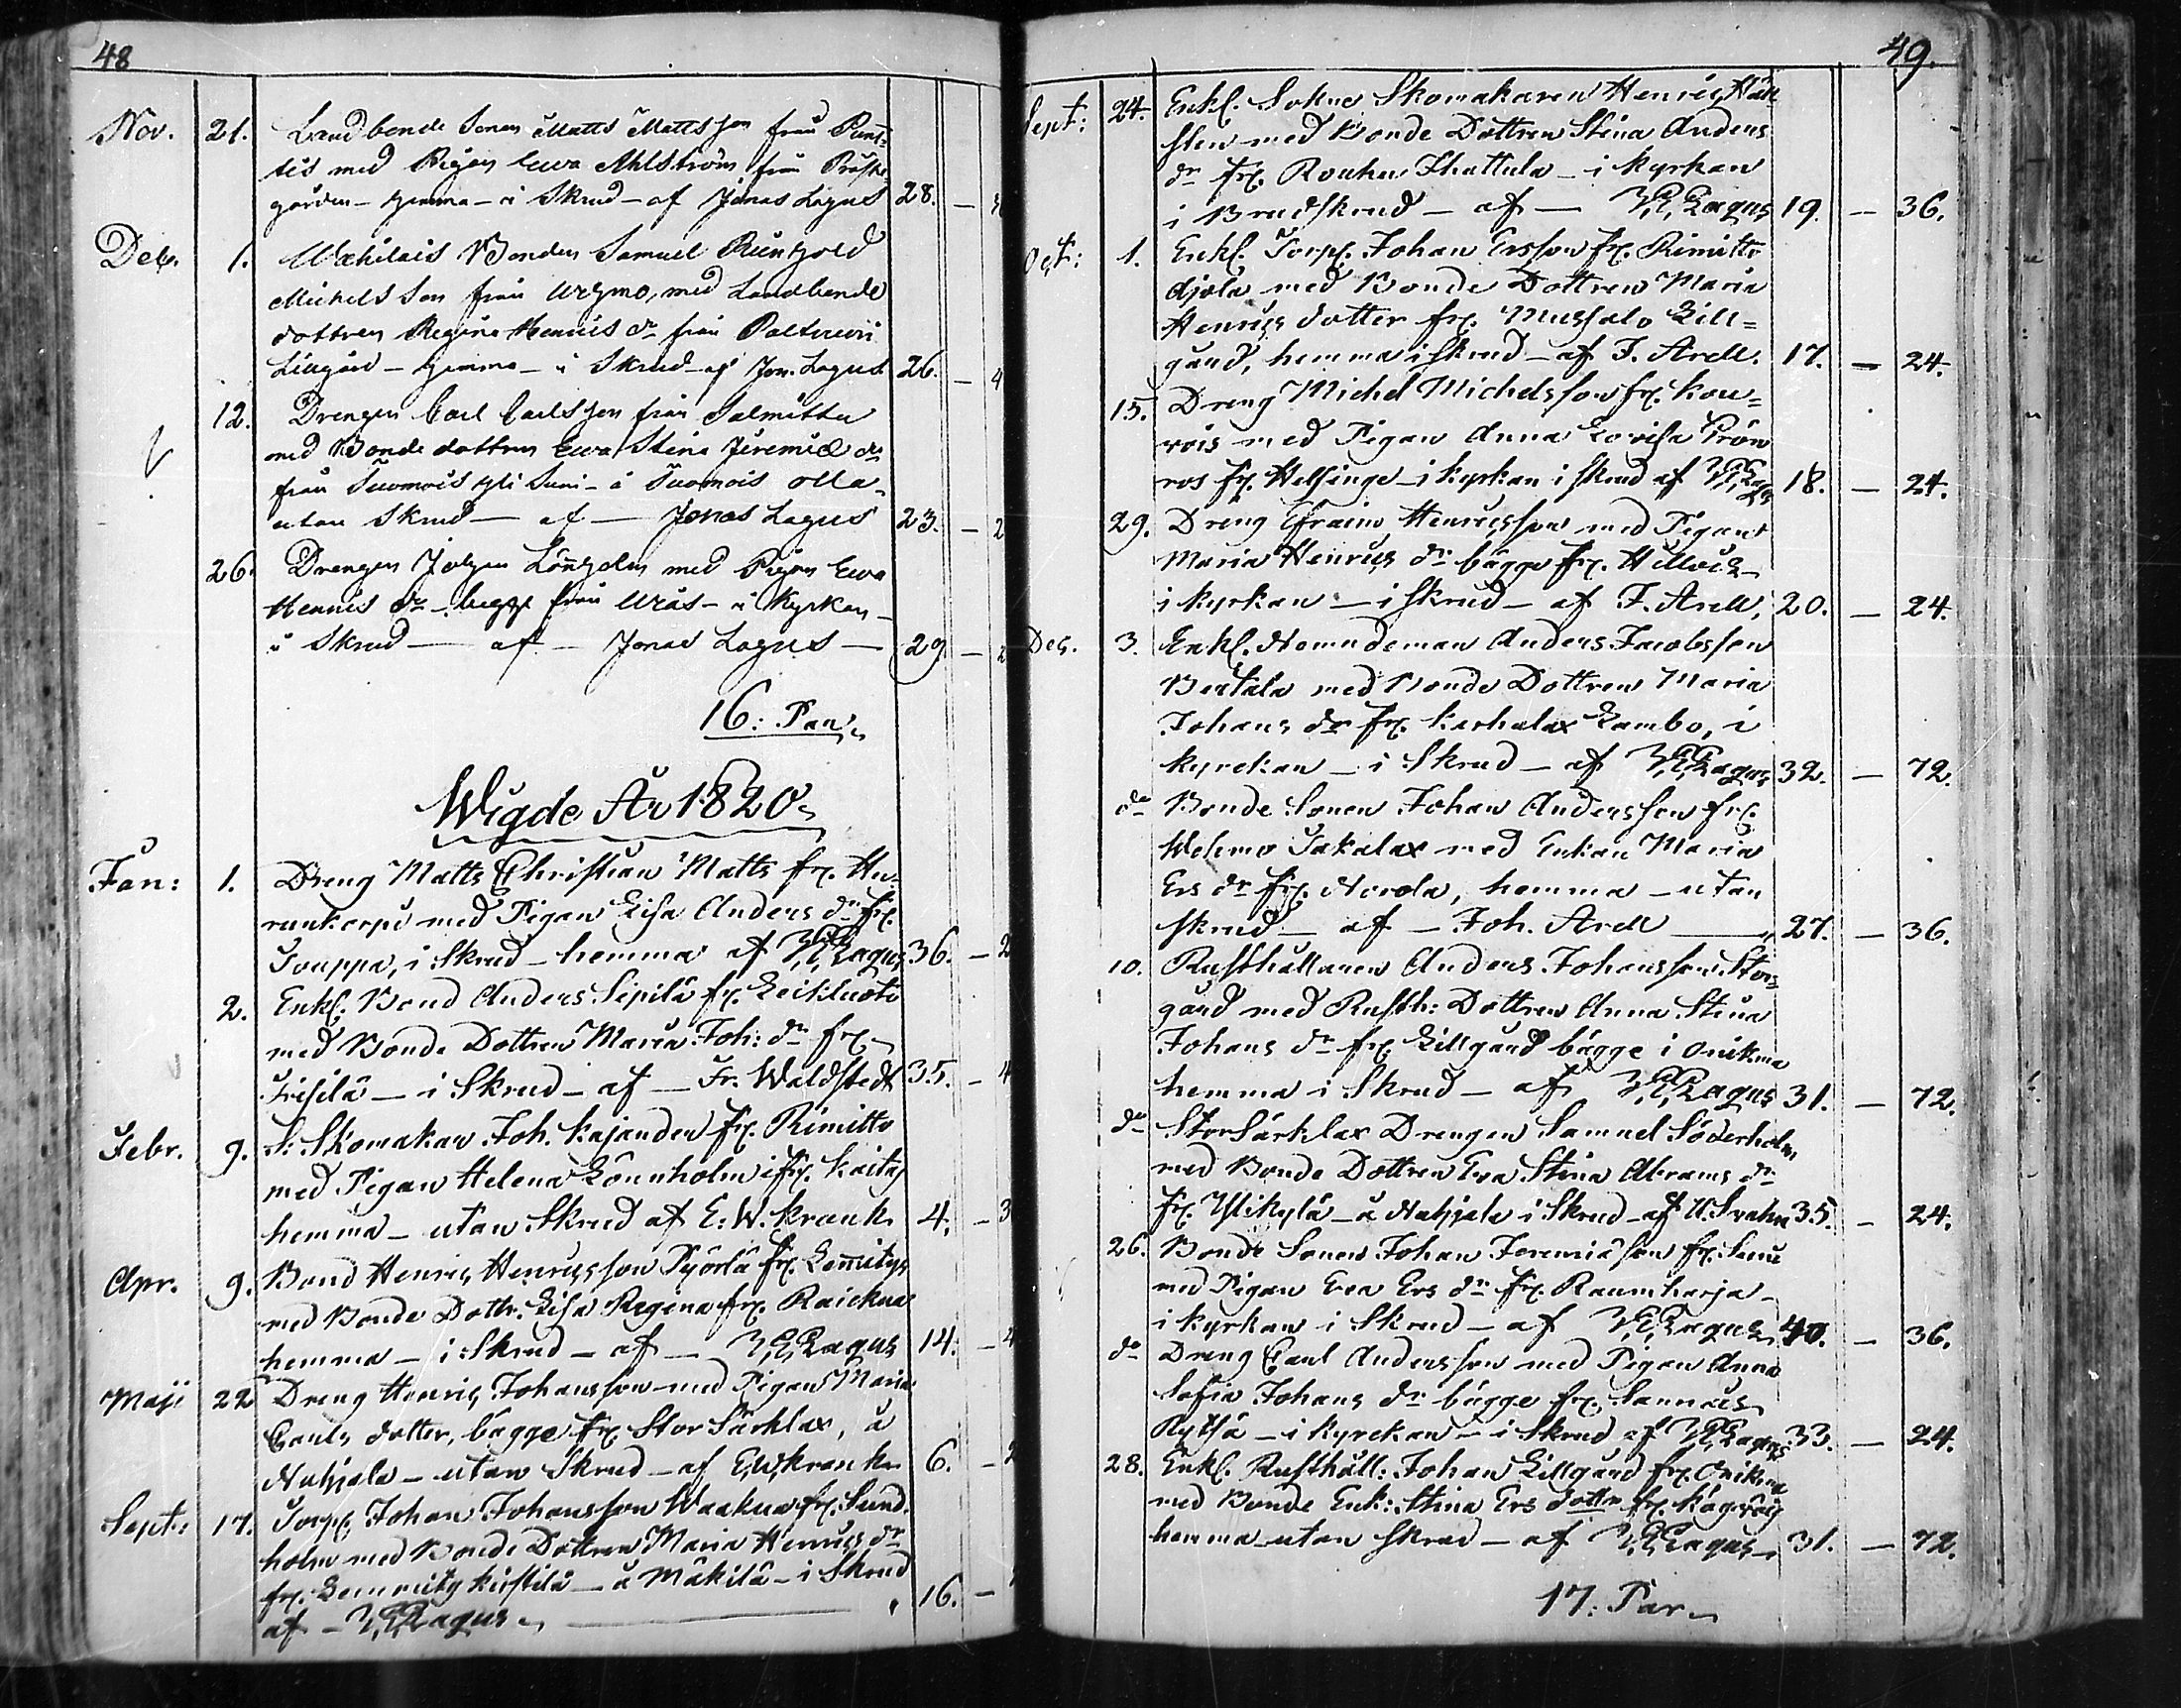 48
Nov. 21. Landbonde Sonen Matts Mattsson från
tis med Pigan Ewa Ahlström från Präste-
gården - hemma - i Skrud - af Jonas Lagus 28. -
Dec. 1. Bonden Samuel
Michels Son från med Landbonde
dottren Regina Henrics dr från
Lillgård - hemma - i Skrud - af Jon. Lagus 26. - 4
12. Drengen Carl Carlsson från Salmitta
med Bonde dottren Ewa Stina Jeremiæ dr
från Suomois - i Suomois
utan Skrud - af - Jonas Lagus 23. - 2
26. Drengen Johan Lönholm med Pigan Ewa
Henrics dr - begge från - i Kyrkan -
i Skrud - af - Jonas Lagus - 29 - 2
16: Par
Wigde År 1820
Jan: 1. Dreng Matts Christian Matts fr. Hu-
runkorpi med Pigan Lisa Anders dr fr.
Jouppa, i Skrud - hemma af Lagus 36. - 2
2. Enkl. Bond Anders Sipilä fr. Leikluoto
med Bonde Dottren Maria Joh: dr fr.
- i Skrud - af - Fr. Waldstedt 35. - 4
Febr. 9. S: Skomakar Joh. Kajander fr. Rimitto
med Pigan Helena Lönnholm fr. Kaitas
hemma - utan Skrud af E: W. Kranck 4. - 3
Apr. 9. Bond Henric Henricsson Pyörlä fr. Lemmitys
med Bonde Dottr. Lisa Regina fr. Raickua
hemma - i Skrud - af - Lagus 14. - 4
Maji 22 Dreng Henric Johansson med Pigan Maria
Carls dotter, bägge fr. Stor Särklax, å
Nuhjala - utan Skrud - af E.W. Kranck 6. - 2
Sept: 17. Torp. Johan Johansson Waakua fr. Sund-
holm med Bonde Dottren Maria Henrics dr
fr. Lemmity Kirstilä - å Mäkilä - i Skrud
af - Lagus 16. -
49.
Sept: 24. Enkl. Sokne Skomakaren Henric
sten med Bonde Dottren Stina Anders
dr fr. Rouhu - i kyrkan
i Brudskrud - af - Lagus 19. - 36.
Oct: 1. Enkl. Torp. Johan Ersson fr. Rimitto
med Bonde Dottren Maria
Henrics dotter fr. Mussalo Lill=
gård, hemma i Skrud - af J. Arell. 17. - 24.
15. Dreng Michel Michelsson fr. Kou=
rois med Pigan Anna Lovisa Grön
ros fr. Helsinge - i kyrkan i Skrud af 18. - 24.
29. Dreng Efraim Henricsson med Pigan
Maria Henrics dr bägge fr.
i kyrkan - i Skrud - af J. Arell, 20. - 24.
Dec. 3. Enkl. Nemndeman Anders Jacobsson
Bertala med Bonde Dottren Maria
Johans dr fr. Karhulax Lambo, i
kyrckan - i Skrud - af Lagus 32. - 72.
do Bonde Sonen Johan Andersson fr.
Wehmo Jakalax med Enkan Maria
Ers dr fr. Norola, hemma - utan
Skrud - af - Joh. Arell 27. - 36.
10. Rusthållaren Anders Johansson Stor-
gård med Rusth: Dottren Anna Stina
Johans dr fr. Lillgård bägge i Onikma
hemma i Skrud - af Lagus 31. - 72.
do Stor Särklax Drengen Samuel Söderholm
med Bonde Dottren Eva Stina Abrams dr
fr. Ylikylä - å Nuhjala i Skrud - af 35. - 24.
26. Bonde Sonen Johan Jeremiæson fr. Suni
med Pigan Eva Ers dr fr. Raumharja -
i kyrkan i Skrud - af Lagus 40. - 36.
do Dreng Carl Andersson med Pigan Anna
Sofia Johans dr bägge fr. Sannais
- i kyrckan - i Skrud af Lagus 33. - 24.
28. Enkl. Rusthåll: Johan Lillgård fr. Onikma
med Bonde Enk: Stina Ers dottr fr.
hemma utan Skrud - af Lagus 31. - 72.
17: Par